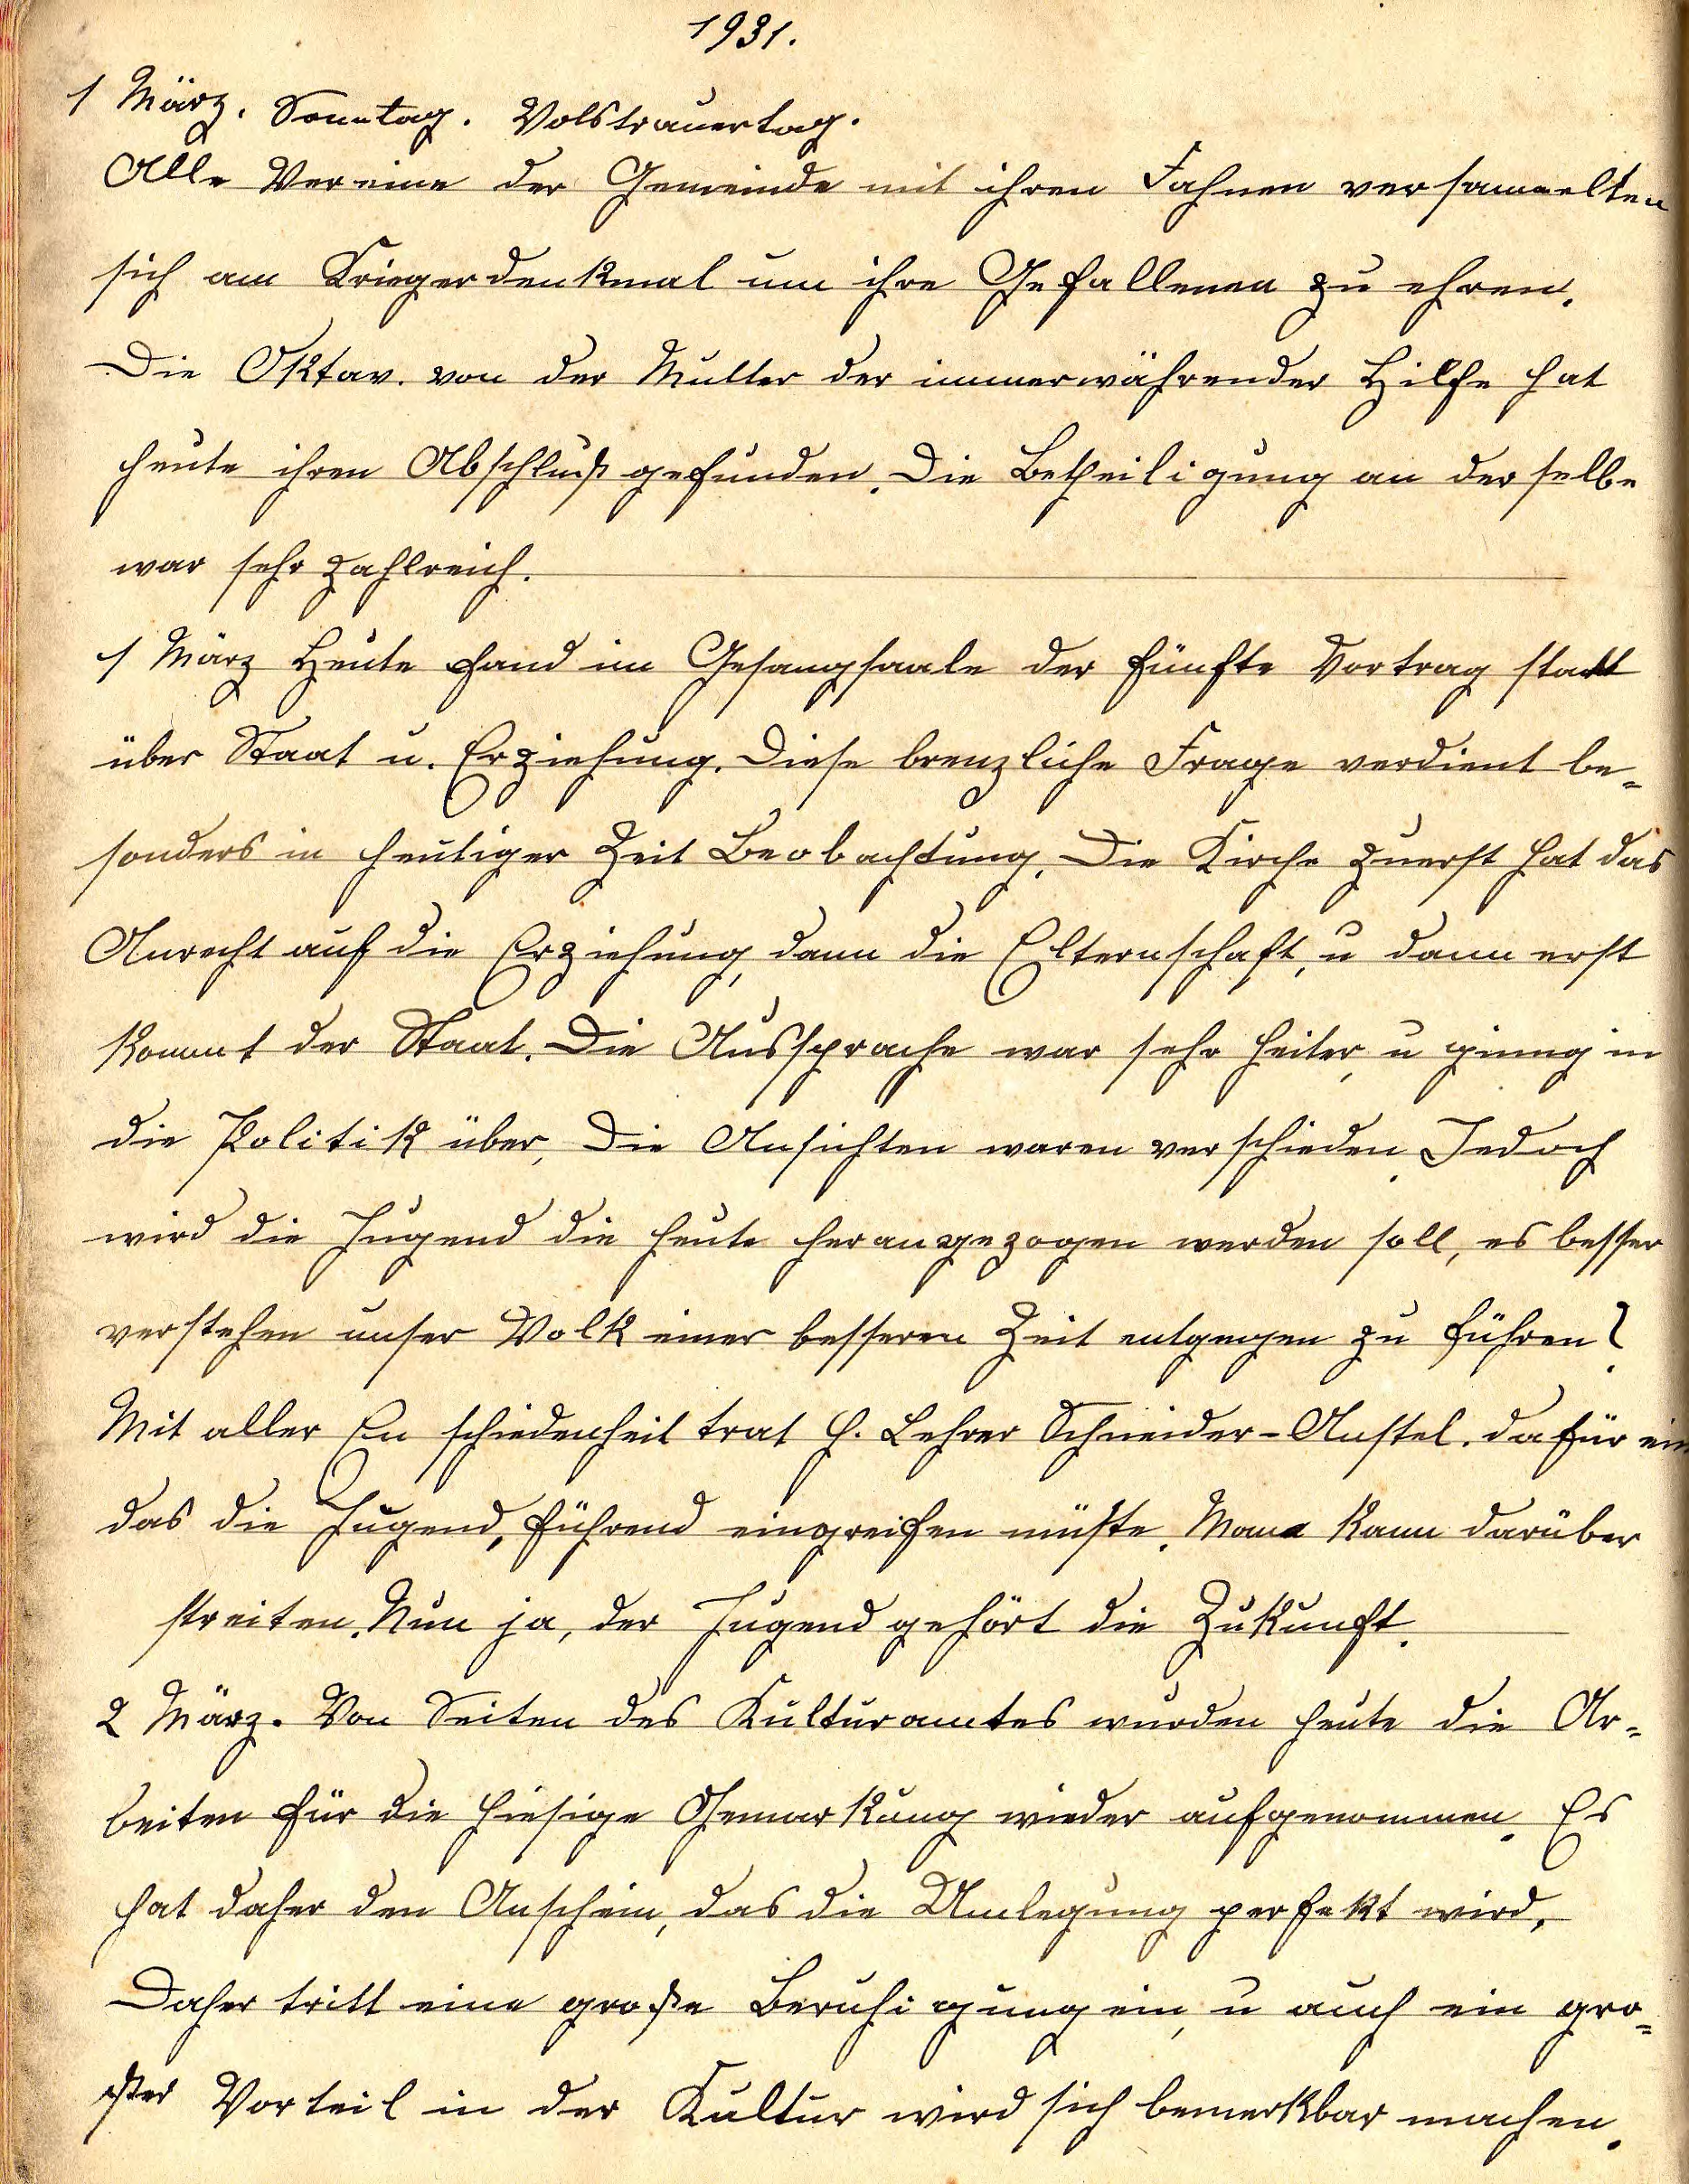 1931.
1 März. Sonntag. Volstrauertag.
Alle Vereine der Gemeinde mit ihren Fahnen versammelten
sich am Kriegerdenkmal um ihre Gefallenen zu ehren.
Die Oktav. von der Mutter der immerwährender Hilfe hat
heute ihren Abschluß gefunden. Die Betheiligung an derselbe
war sehr zahlreich.
1 März Heute fand im Gesangsaale der fünfte Vortrag statt
über Staat u. Erziehung. Diese brenzliche Frage verdient be=
sonders in heutiger Zeit Beobachtung. Die Kirche zuerst hat das
Anrecht auf die Erziehung, dann die Elternschaft, u dann erst
kommt der Staat. Die Aussprache war sehr heiter, u ginng in
die Politik über, Die Ansichten waren verschieden. Jedoch
wird die Jugend die heute herangezogen werden soll, es besser
verstehen unser Volk einer besseren Zeit entgegen zu führen?
Mit aller En schiedenheit trat H. Lehrer Schneider-Anstel. dafür ein
das die Jugend, führend eingreifen müßte. Mann kann darüber
streiten. Nun ja, der Jugend gehört die Zukunft.
2 März. Von Seiten des Kulturamtes wurden heute die Ar=
beiten für die hiesige Gemarkung wieder aufgenommen. Es
hat daher den Anschein, das die Umlegung perfekt wird,
Daher tritt eine große Beruhigung ein, u auch ein gro=
ßer Vorteil in der Kultur wird sich bemerkbar machen.